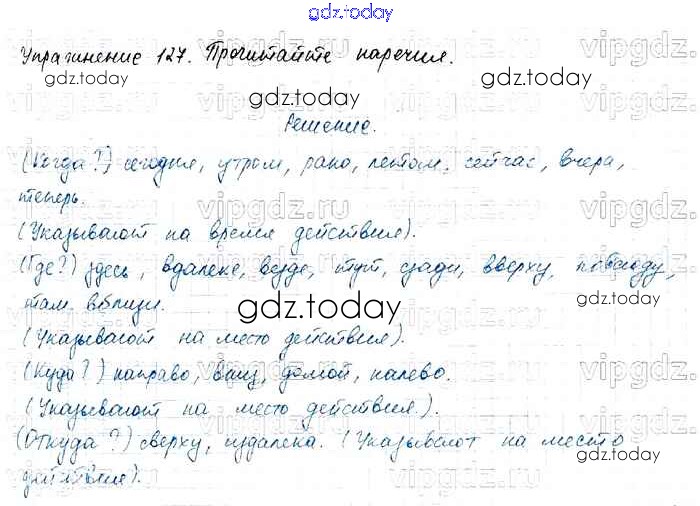 gdz.today
Упражнение 127. Прочитайте наречия.
gdz.today
gdz.today
Решение.
(Когда?) сегодня, утром, рано, летом, сейчас, вчера,
теперь.
(Указывают на время действия).
(Где?) здесь, вдалеке, везде, тут, сзади, вверху, повсюду,
там, вблизи.
gdz.today
(Указывают на место действия).
(Куда?) направо, вниз, домой, налево.
(Указывают на место действия.).
gdz.today
(Откуда?) сверху, издалека. (Указывают на место
действия).
gdz.today
gdz.today
vipgdz.ru